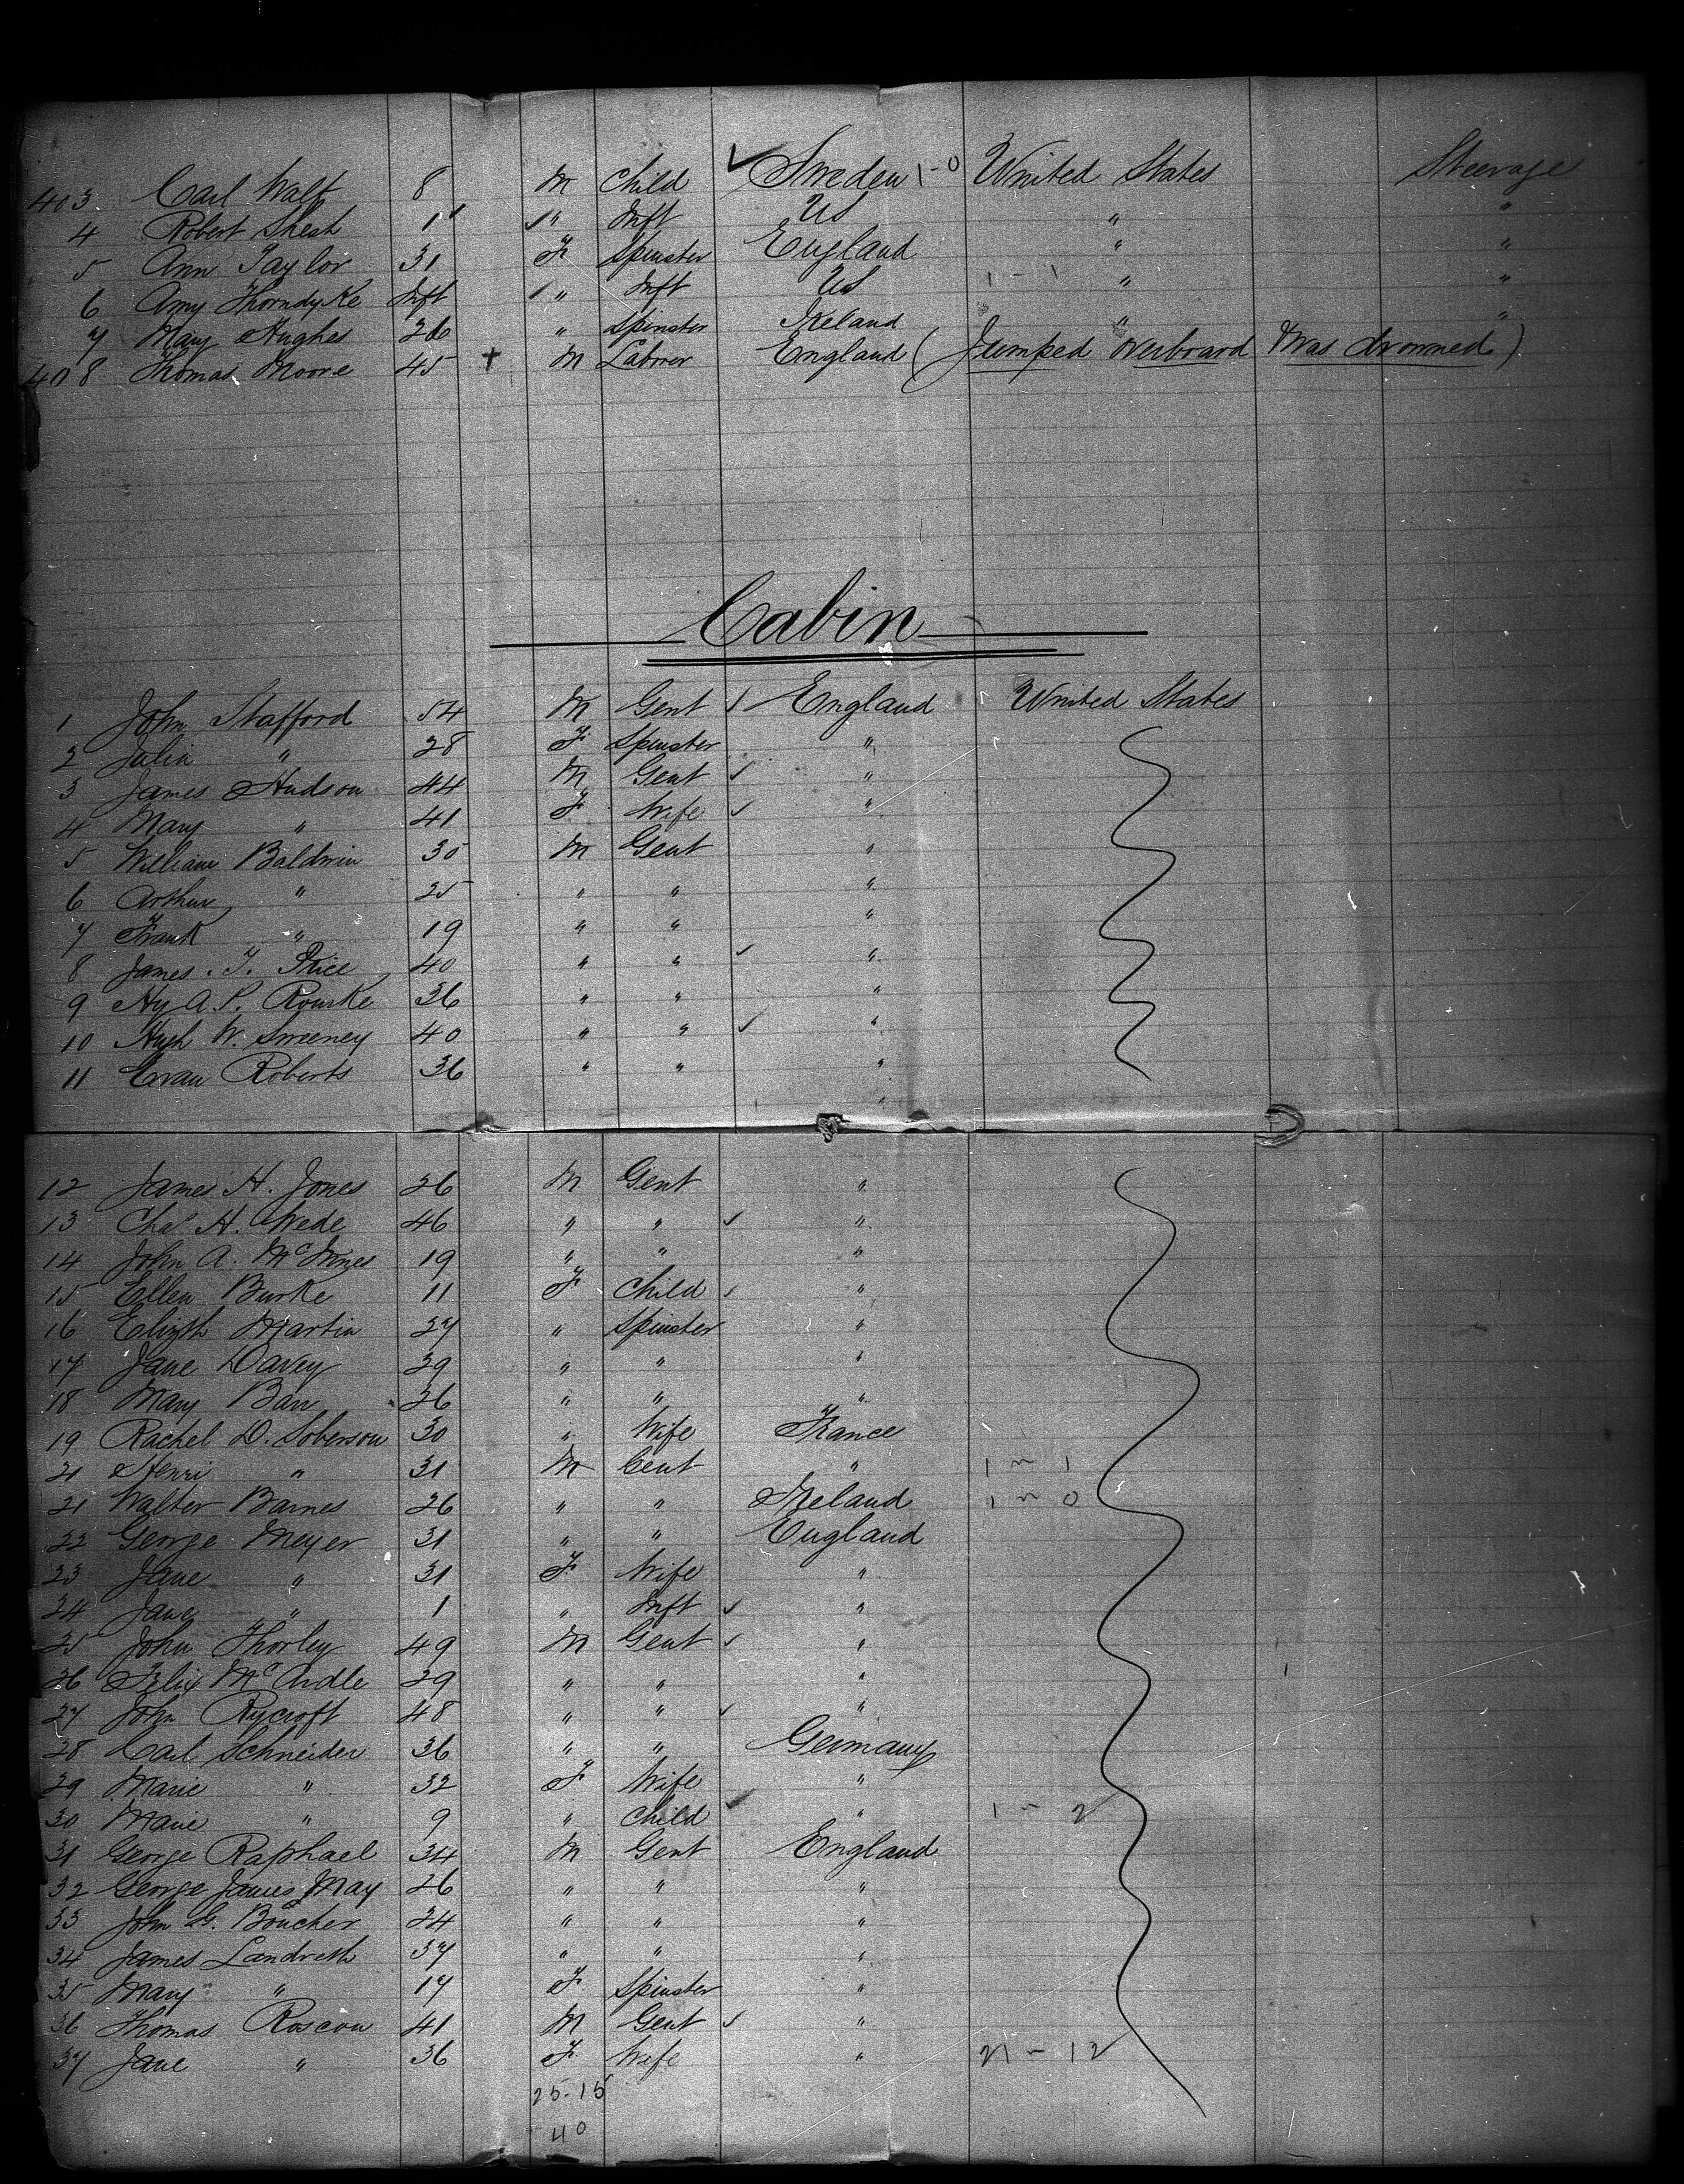 403 Carl Walt 8 M Child ✓ Sweden 1-0 United States Steerage
4 Robert 1 1 " Inft US " "
5 Ann Taylor 31 F Spinster England " "
6 Amy Thorndyke Inft 1 " Inft US 1-1 " "
7 Mary Hughes 26 " Spinster Ireland " "
408 Thomas Moore 45 + M Laborer England (Jumped overboard & was drowned)
Cabin
1 John Stafford 54 M Gent ✓ England United States
2 Julia " 28 F Spinster "
3 James Hudson 44 M Gent ✓ "
4 Mary " 41 F Wife ✓ "
5 William Baldwin 30 M Gent "
6 Arthur " 25 " " "
7 Frank " 19 " " "
8 James. T. Price 40 " " ✓ "
9 Hy A. P. Rourke 36 " " "
10 Hugh W. Sweeney 40 " " ✓ "
11 Evan Roberts 36 " " "
12 James H. Jones 26 M Gent "
13 Chas H. Wede 46 " " ✓ "
14 John A. McInnes 19 " " "
15 Ellen Burke 11 F Child ✓ "
16 Elizth Martin 27 " Spinster "
17 Jane Davey 29 " " "
18 Mary Barr 26 " " "
19 Rachel D. Soberson 30 " Wife France
20 Henri " 31 M Gent " 1-1
21 Walter Barnes 26 " " Ireland 1-0
22 George Meyer 31 " " England
23 Jane " 31 F Wife "
24 Jane " 1 " Inft ✓ "
25 John Thorley 49 M Gent ✓ "
26 Felix McArdle 29 " " "
27 John Rycroft 48 " " ✓ "
28 Carl Schneider 36 " " Germany
29 Marie " 32 F Wife "
30 Marie " 9 " Child ✓ " 1-2
31 George Raphael 34 M Gent England
32 George James May 26 " " "
33 John G. Boucher 24 " " "
34 James Landreth 37 " " "
35 Mary " 17 F Spinster "
36 Thomas Roscow 41 M Gent ✓ "
37 Jane " 36 F Wife " 21-12
25-15
40